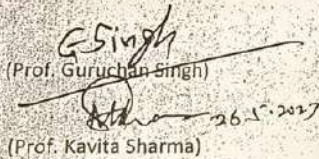 GSingh
(Prof. Guruchan Singh)
26.5.2023
(Prof. Kavita Sharma)